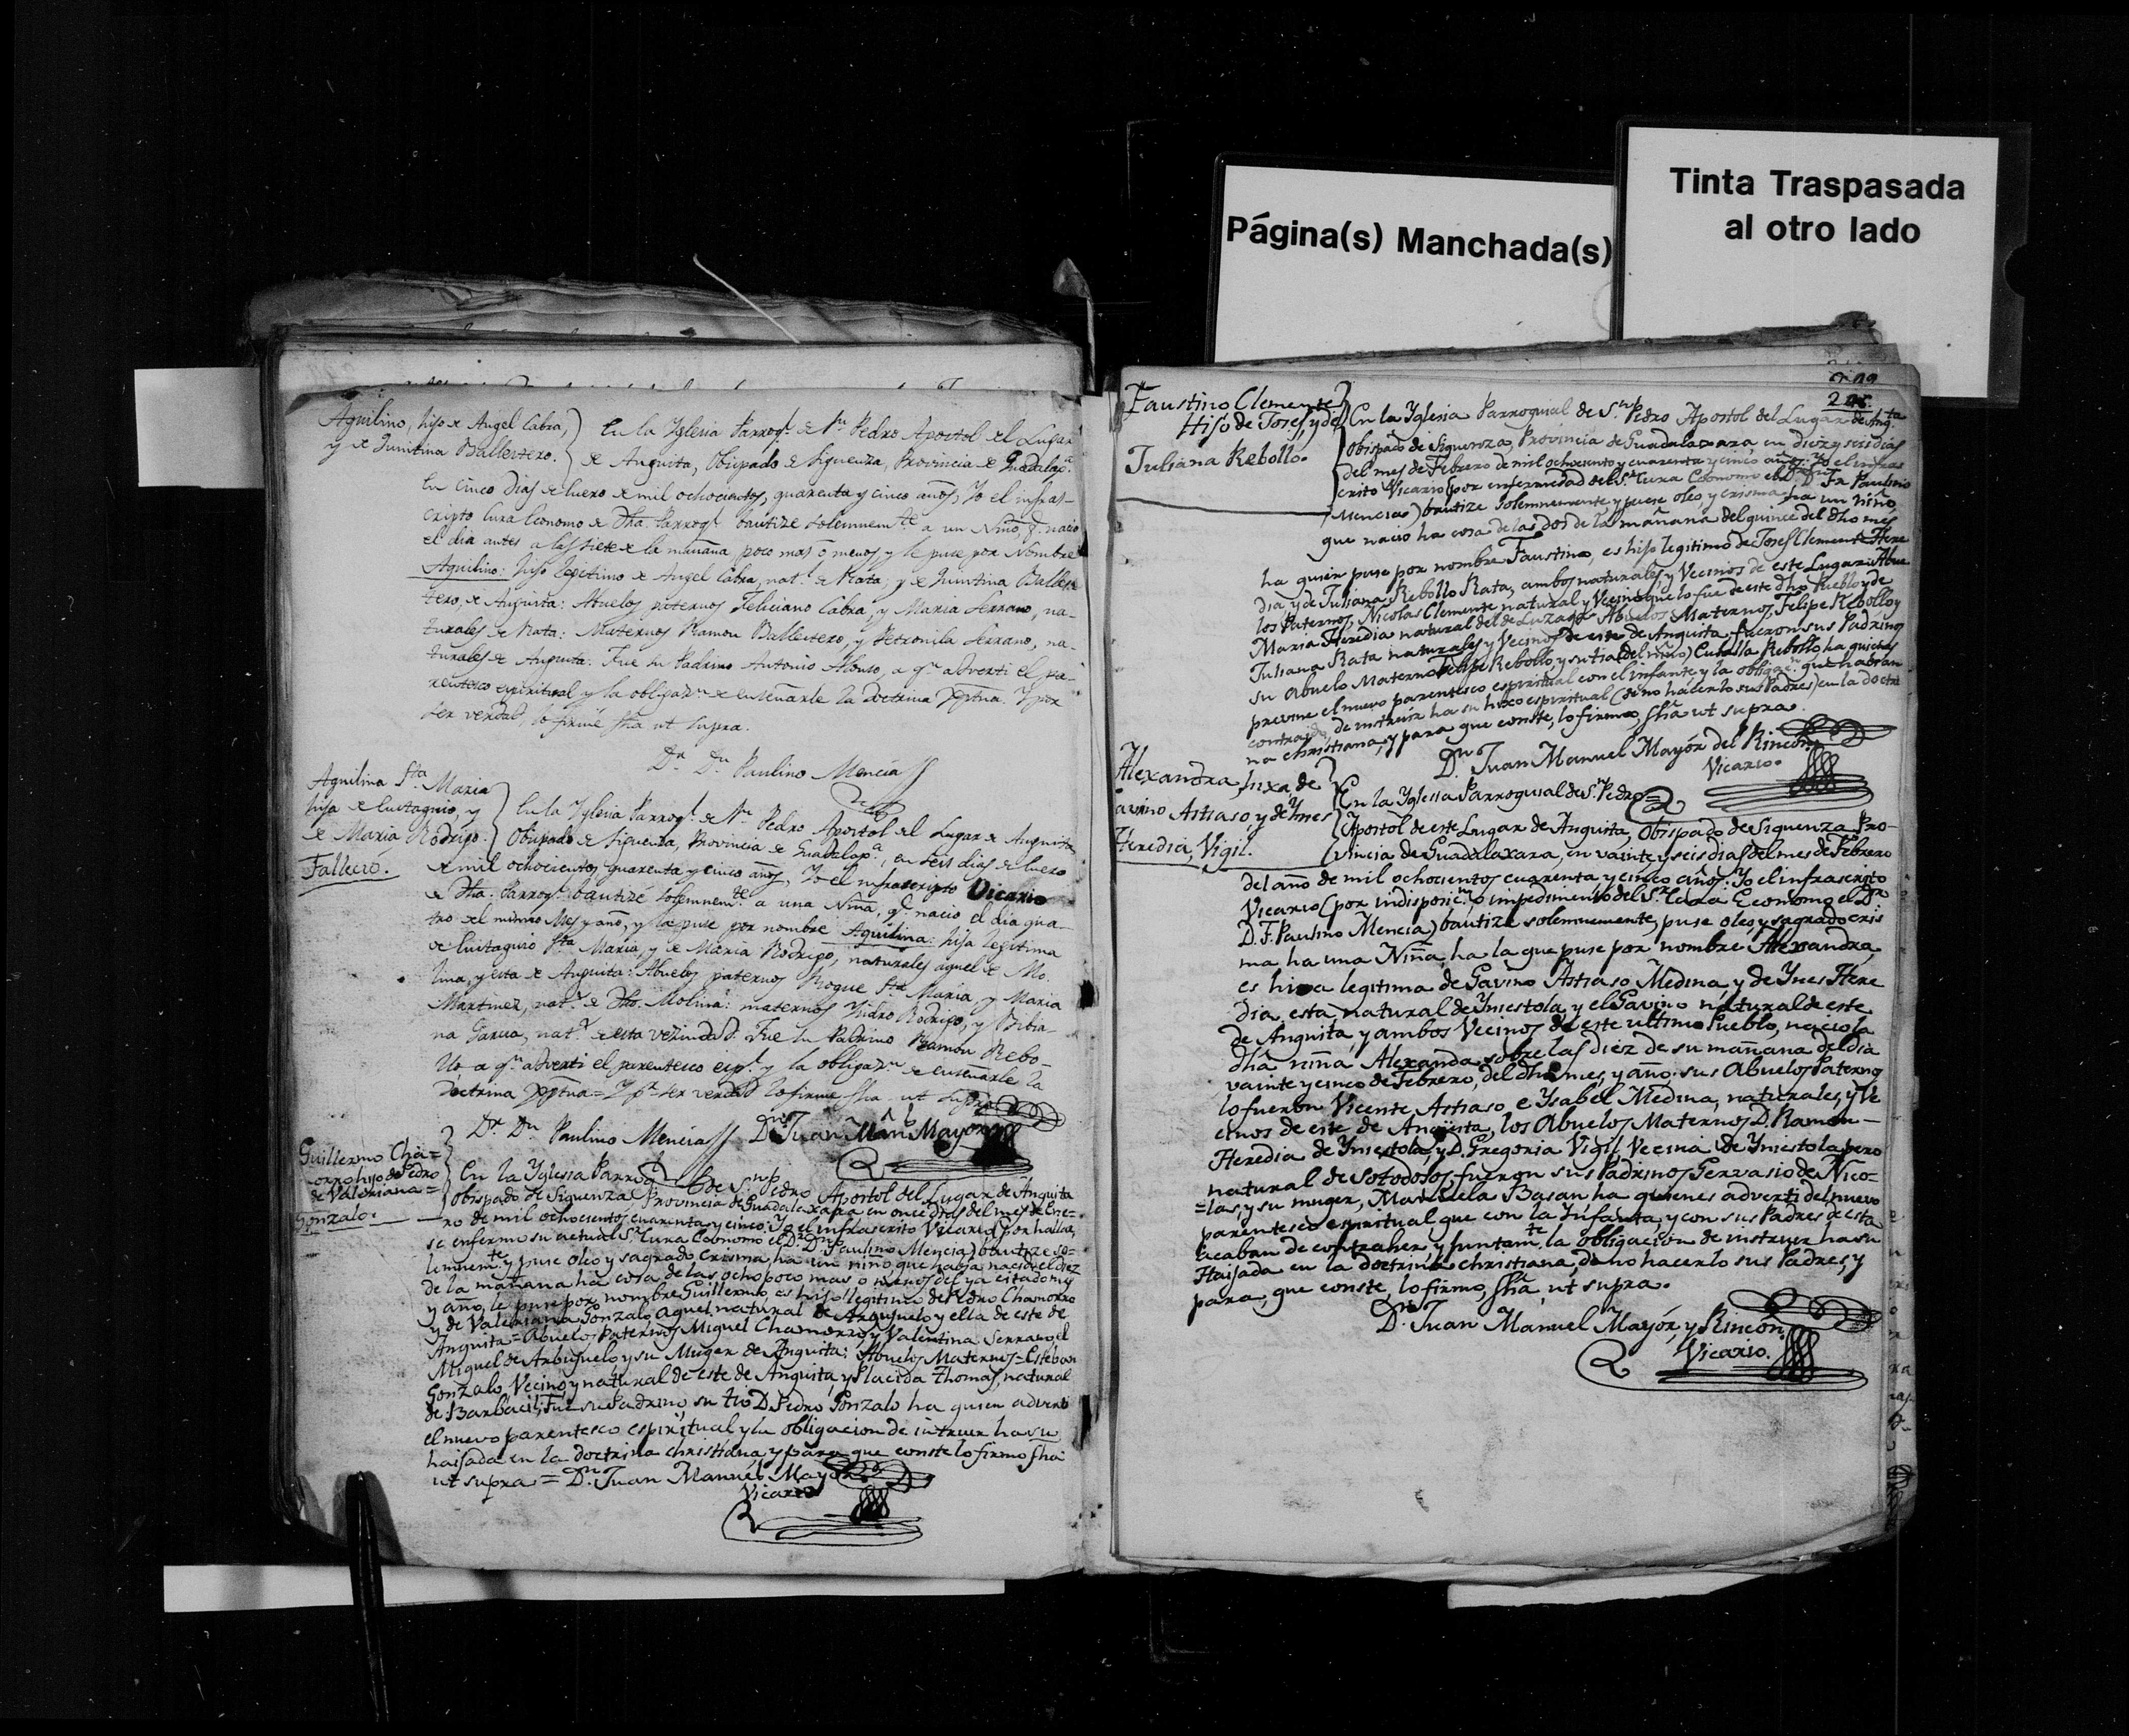 Página(s) Manchada(s)
Tinta Traspasada
al otro lado
Aquilino, hijo de Angel Cabra,
y de Quintina Ballestero.
En la Yglesia Parroq.l de S.n Pedro Apostol del Lugar
de Anguita, Obispado de Siguenza, Provincia de Guadalax.a
En cinco dias de Enero de mil ochocientos, quarenta y cinco años, Yo el infras-
cripto Cura Economo de dha. Parroq.l bautizé solemnem.te a un Niño, q.e nacio
el dia antes a las siete de la mañana, poco mas ó menos y le puse por Nombre
Aquilino: hijo legitimo de Angel Cabra, nat.l de Rata; y de Quintina Balles-
tero, de Anguita: Abuelos paternos Feliciano Cabra, y Maria Serrano, na-
turales de Rata: Maternos Ramon Ballestero, y Petronila Serrano, na-
turales de Anguita. Fue su Padrino Antonio Alonso, a q.n adverti el pa-
rentesco espiritual y la obligaz.n de enseñarle la doctrina Xptna. Y por
ser verdad, lo firmé fha ut supra.
D.r D.n Paulino Mencia
Aquilina S.ta Maria
hija de Eustaquio, y
de Maria Rodrigo.
Falleció.
En la Yglesia Parroq.l de S.n Pedro Apostol del Lugar de Anguita
Obispado de Siguenza, Provincia de Guadalax.a, en seis dias de Enero
de mil ochocientos, quarenta y cinco años, Yo el infrascripto Vicario
de dha. Parroq.l bautizé solemnem.te a una Niña, q.e nacio el dia qua-
tro del mismo Mes y año, y la puse por nombre Aquilina: hija legitima
de Eustaquio S.ta Maria, y de Maria Rodrigo, naturales aquel de Mo-
lina, y esta de Anguita: Abuelos paternos Roque S.ta Maria, y Maria
Martinez, nat.s de dho. Molina: maternos Ysidro Rodrigo, y Bibia-
na Garcia, nat.s de esta vezindad. Fue su Padrino Ramon Rebo-
llo, a q.n adverti el parentesco esp.l y la obligaz.n de enseñarle la
Doctrina Xptna = Y p.r ser verdad lo firmé fha ut supra
D.r D.n Paulino Mencia D.n Juan Man.l Mayor
Guillermo Cha=
orro hijo de Pedro
de Valeriana =
Gonzalo.
En la Yglesia Parroq.l de S.n Pedro Apostol del Lugar de Anguita
Obispado de Siguenza Provincia de Guadalaxara en once dias del mes de Ene=
ro de mil ochocientos cuarenta y cinco: Yo el infrascrito Vicario (por hallar
se enfermo su actual S.r Cura Economo el D.r D.n Paulino Mencia) bautize so=
lemnem.te y puse oleo y sagrado crisma ha un niño que havia nacido el diez
de la mañana ha cosa de las ocho poco mas o menos del ya citado mes
y año, le puse por nombre Guillermo, es hijo legitimo de Pedro Chamorro
y de Valeriana Gonzalo, aquel natural de Arbujuelo y ella de este de
Anguita = Abuelos Paternos Miguel Chamorro, y Valentina Serrano, el
Miguel de Arbujuelo y su Muger de Anguita: Abuelos Maternos = Esteban
Gonzalo, Vecino y natural de este de Anguita, y Placida Thomas, natural
de Barbacil: Fue su Padrino, su tio D. Pedro Gonzalo ha quien adverti
el nuevo parentesco espiritual y la obligacion de intruir ha su
haijada en la doctrina christiana, y para que conste lo firmo fha
ut supra = D.n Juan Manuel Mayor
Vicario
Faustino Clemente
Hijo de Josef, y de
Juliana Rebollo.
En la Yglesia Parroquial de S.n Pedro Apostol del Lugar de Ang.ta
Obispado de Siguenza, Provincia de Guadalaxara, en diez y seis dias
del mes de Febrero de mil ochociento y cuarenta y cinco años: Yo el infras
crito Vicario (por enfermedad del S.r Cura Economo el D. D. Fr. Paulino
Mencia) bautize solemnemente y puse oleo, y crisma ha un niño,
que nacio ha cosa de las dos de la mañana del quince del dho mes
ha quien puse por nombre Faustino, es hijo legitimo de Josef Clemente Here
dia, y de Juliana Rebollo Rata, ambos naturales, y Vecinos de este Lugar: Abue
los Paternos, Nicolas Clemente natural y Vecino que lo fue de este dho Pueblo y de
Maria Heredia natural del de Luzaga Abuelos Maternos, Felipe Rebollo y
Juliana Rata naturales y Vecinos de este de Anguita, fueron sus Padrinos
su Abuelo Materno Felipe Rebollo, y su tia (del niño) Rebollo, ha quienes
previne el nuevo parentesco espiritual con el infante y la obligac.n que habran
contraido, de instruir ha su hixo espiritual (si no hacerlo sus Padres) en la doctri
na christiana, y para que conste, lo firmo, fha ut supra.
D.n Juan Manuel Mayór del Rincon
Vicario.
Alexandra, hixa, de
Gavino Astraso, y de Ynes
Heredia, Vigil.
En la Yglesia Parroquial de S.n Pedro
Apostol de este Lugar de Anguita, Obispado de Siguenza Pro-
vincia de Guadalaxara, en vainte y seis dias del mes de Febrero
del año de mil ochocientos cuarenta y cinco años: Yo el infrascrito
Vicario (por indisposic.n o impedimento del S.r Cura Economo el D.or
D. F. Paulino Mencia) bautize solemnemente, puse oleo, y sagrado cris
ma ha una Niña, ha la que puse por nombre Alexandra,
es hixa legitima de Gavino Astraso Medina, y de Ynes Here
dia, esta natural de Yniestola, y el Gavino natural de este
de Anguita, y ambos Vecinos de este ultimo Pueblo, nacio la
dha niña Alexanda sobre las diez de su mañana del dia
vainte y cinco de Febrero, del dho mes, y año: sus Abuelos Paternos
lo fueron Vicente Astraso, e Ysabel Medina, naturales, y Ve
cinos de este de Anguita, los Abuelos Maternos D. Ramon -
Heredia de Yniestola, y D. Gregoria Vigil, Vecina de Yniestola pero
natural de Sotodosos, fueron sus Padrinos Gervasio de Nico=
=las, y su muger, Manuela Basan ha quienes adverti del nuevo
parentesco espiritual, que con la Ynfanta, y con sus Padres de esta
acaban de contraher, y juntam.te la obligacion de instruir ha su
Haijada en la doctrina christiana, de no hacerlo sus Padres, y
para, que conste, lo firmo, fha, ut supra.
D.n Juan Manuel Mayór, y Rincón,
Vicario.